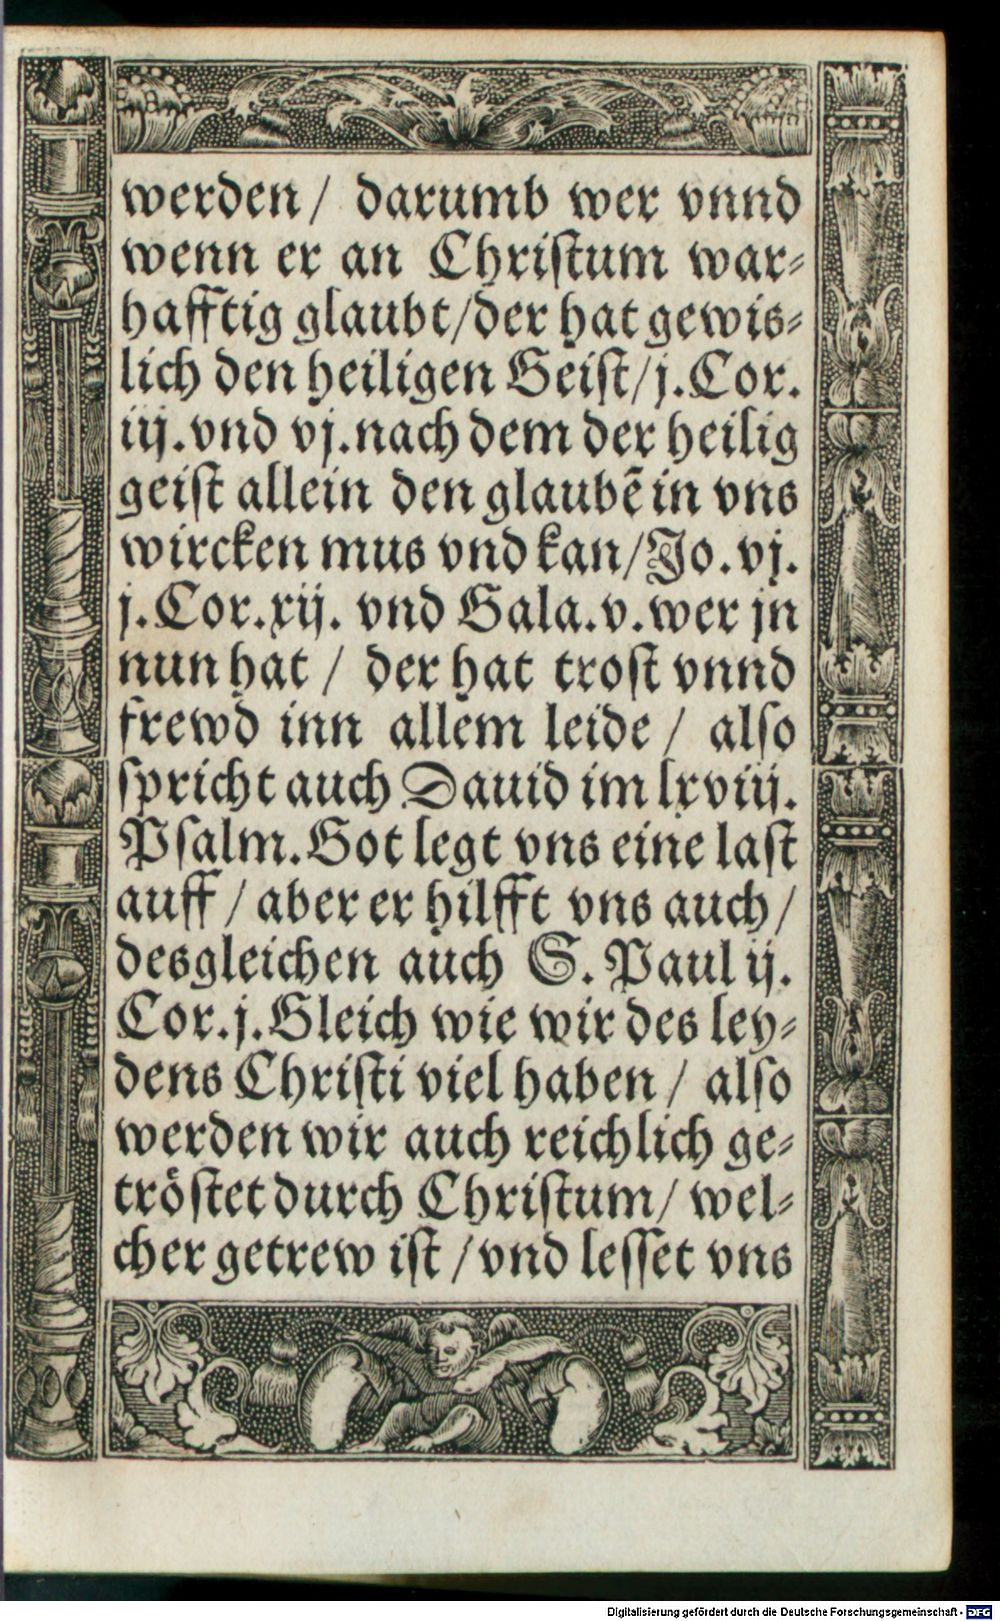 werden/ darumb wer vnnd
wenn er an Chriſtum war⸗
hafftig glaubt/der hat gewis⸗
lich den heiligen Geiſt/j.Cor.
iij.vnd vj.nach dem der heilig
geiſt allein den glaubẽ in vns
wircken mus vnd kan/Jo.vj.
j.Cor.xij. vnd Gala.v.wer jn
nun hat / der hat troſt vnnd
frewd inn allem leide / alſo
ſpricht auch Dauid im lxviij.
Pſalm.Got legt vns eine laſt
auff / aber er hilfft vns auch /
desgleichen auch S. Paul ij.
Cor.j.Gleich wie wir des ley⸗
dens Chriſti viel haben / alſo
werden wir auch reichlich ge⸗
tröſtet durch Chriſtum/ wel⸗
cher getrew iſt /vnd leſſet vns
Digitalisierung gefördert durch die Deutsche Forschungsgemeinschaft - DFG